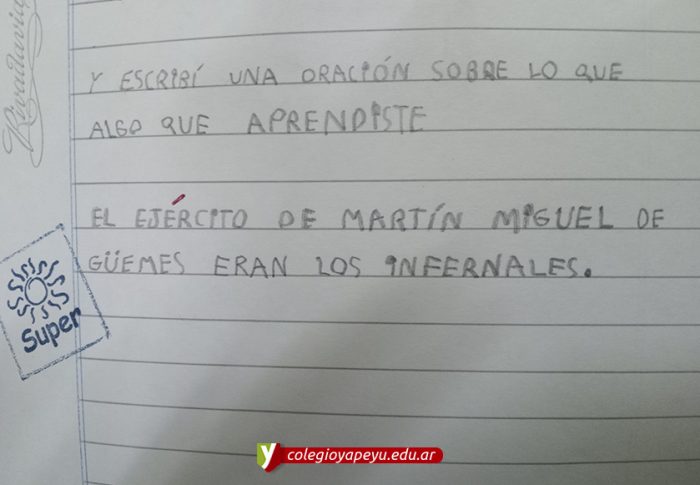 Rivadavia
Y ESCRIBÍ UNA ORACIÓN SOBRE LO QUE
ALGO QUE APRENDISTE
EL EJÉRCITO DE MARTÍN MIGUEL DE
GÜEMES ERAN LOS INFERNALES.
Super
y colegioyapeyu.edu.ar